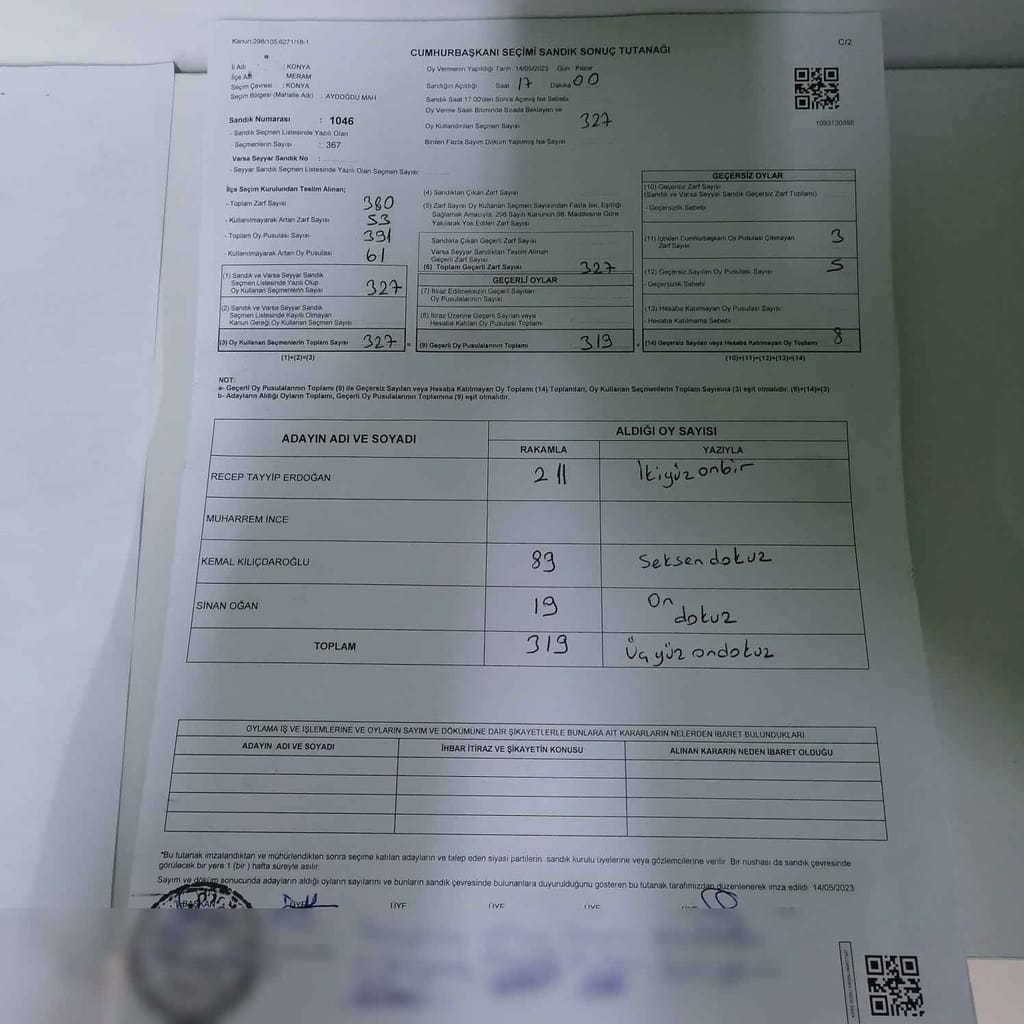 Kanun:298/105;6271/18-1
C/2
CUMHURBAŞKANI SEÇİMİ SANDIK SONUÇ TUTANAĞI
İl Adı : KONYA
İlçe Adı : MERAM
Seçim Çevresi : KONYA
Seçim Bölgesi (Mahalle Adı) : AYDOĞDU MAH
Oy Vermenin Yapıldığı Tarih :14/05/2023 Gün : Pazar
Sandığın Açıldığı Saat 17 Dakika 00
Sandık Saat 17.00'den Sonra Açılmış İse Sebebi
Oy Verme Saati Bitiminde Sırada Bekleyen ve
Oy Kullandırılan Seçmen Sayısı 327
Birden Fazla Sayım Döküm Yapılmış İse Sayısı
1093730395
Sandık Numarası : 1046
- Sandık Seçmen Listesinde Yazılı Olan
Seçmenlerin Sayısı : 367
Varsa Seyyar Sandık No :
- Seyyar Sandık Seçmen Listesinde Yazılı Olan Seçmen Sayısı
İlçe Seçim Kurulundan Teslim Alınan;
- Toplam Zarf Sayısı 380
- Kullanılmayarak Artan Zarf Sayısı 53
- Toplam Oy Pusulası Sayısı 391
- Kullanılmayarak Artan Oy Pusulası 61
(1) Sandık ve Varsa Seyyar Sandık
Seçmen Listesinde Yazılı Olup
Oy Kullanan Seçmenlerin Sayısı 327
(2) Sandık ve Varsa Seyyar Sandık
Seçmen Listesinde Kayıtlı Olmayan
Kanun Gereği Oy Kullanan Seçmen Sayısı
(3) Oy Kullanan Seçmenlerin Toplam Sayısı 327 =
(1)+(2)=(3)
(4) Sandıktan Çıkan Zarf Sayısı
(5) Zarf Sayısı Oy Kullanan Seçmen Sayısından Fazla İse, Eşitliği
Sağlamak Amacıyla; 298 Sayılı Kanunun 98. Maddesine Göre
Yakılarak Yok Edilen Zarf Sayısı
Sandıkta Çıkan Geçerli Zarf Sayısı
Varsa Seyyar Sandıktan Teslim Alınan
Geçerli Zarf Sayısı
(6) Toplam Geçerli Zarf Sayısı 327
GEÇERLİ OYLAR
(7) İtiraz Edilmeksizin Geçerli Sayılan
Oy Pusulalarının Sayısı
(8) İtiraz Üzerine Geçerli Sayılan veya
Hesaba Katılan Oy Pusulası Toplamı
(9) Geçerli Oy Pusulalarının Toplamı 319
GEÇERSİZ OYLAR
(10) Geçersiz Zarf Sayısı
(Sandık ve Varsa Seyyar Sandık Geçersiz Zarf Toplamı)
- Geçersizlik Sebebi
(11) İçinden Cumhurbaşkanı Oy Pusulası Çıkmayan
Zarf Sayısı 3
(12) Geçersiz Sayılan Oy Pusulası Sayısı 5
- Geçersizlik Sebebi
(13) Hesaba Katılmayan Oy Pusulası Sayısı
- Hesaba Katılmama Sebebi
(14) Geçersiz Sayılan veya Hesaba Katılmayan Oy Toplamı 8
(10)+(11)+(12)+(13)=(14)
NOT:
a- Geçerli Oy Pusulalarının Toplamı (9) ile Geçersiz Sayılan veya Hesaba Katılmayan Oy Toplamı (14) Toplamları, Oy Kullanan Seçmenlerin Toplam Sayısına (3) eşit olmalıdır. (9)+(14)=(3)
b- Adayların Aldığı Oyların Toplamı, Geçerli Oy Pusulalarının Toplamına (9) eşit olmalıdır.
ADAYIN ADI VE SOYADI ALDIĞI OY SAYISI
RAKAMLA YAZIYLA
RECEP TAYYİP ERDOĞAN 211 İkiyüz onbir
MUHARREM İNCE
KEMAL KILIÇDAROĞLU 89 Seksen dokuz
SİNAN OĞAN 19 On dokuz
TOPLAM 319 Üçyüz ondokuz
OYLAMA İŞ VE İŞLEMLERİNE VE OYLARIN SAYIM VE DÖKÜMÜNE DAİR ŞİKAYETLERLE BUNLARA AİT KARARLARIN NELERDEN İBARET BULUNDUKLARI
ADAYIN ADI VE SOYADI İHBAR İTİRAZ VE ŞİKAYETİN KONUSU ALINAN KARARIN NEDEN İBARET OLDUĞU
*Bu tutanak imzalandıktan ve mühürlendikten sonra seçime katılan adayların ve talep eden siyasi partilerin sandık kurulu üyelerine veya gözlemcilerine verilir. Bir nüshası da sandık çevresinde
görülecek bir yere 1 (bir) hafta süreyle asılır.
Sayım ve döküm sonucunda adayların aldığı oyların sayılarını ve bunların sandık çevresinde bulunanlara duyurulduğunu gösteren bu tutanak tarafımızdan düzenlenerek imza edildi. 14/05/2023
BAŞKAN ÜYE ÜYE ÜYE ÜYE